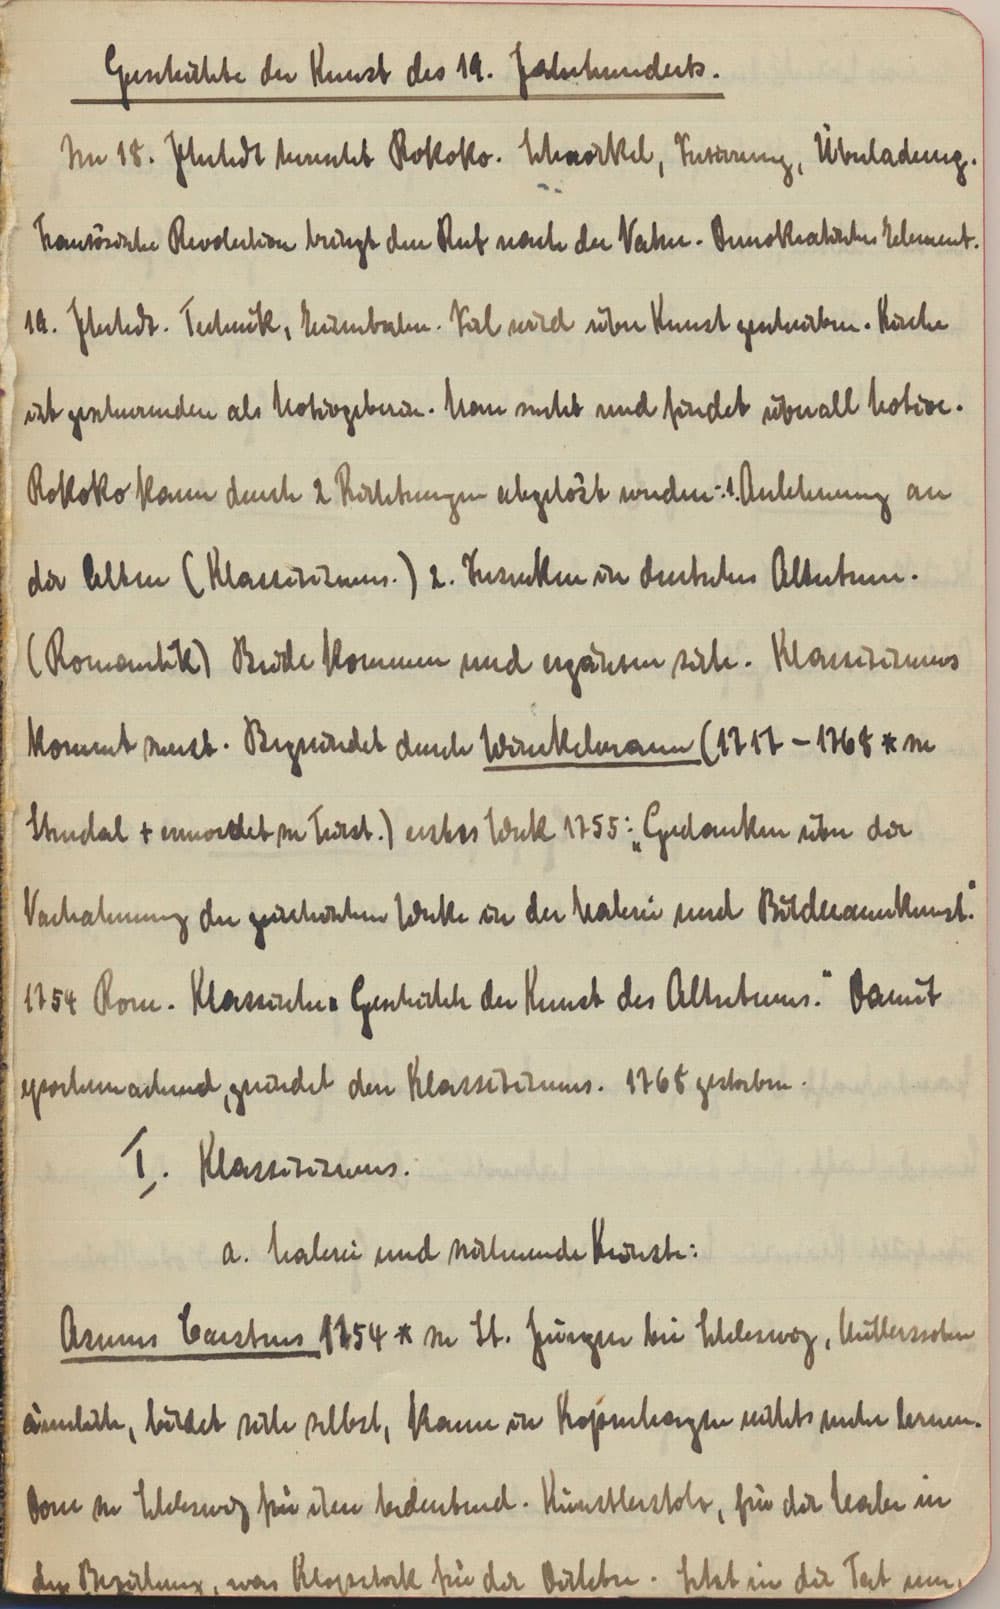 Geschichte der Kunst des 19. Jahrhunderts.
Im 18. Jhrhdt herrscht Rokoko. Schnörkel, Verwirrung, Überladung.
Französische Revolution bringt den Ruf nach der Natur. Demokratisches Element.
19. Jhrhdt. Technik, Eisenbahn. Viel wird über Kunst geschrieben. Kirche
ist geschwunden als Motivgeberin. Man sucht und findet überall Motive.
Rokoko kann durch 2 Richtungen abgelöst werden: 1. Anlehnung an
die Alten (Klassizismus.) 2. Versenken in deutsches Altertum.
(Romantik) Beide kommen und ergänzen sich. Klassizismus
kommt zuerst. Begründet durch Winkelmann (1717 – 1768 * zu
Stendal + ermordet zu Triest.) erstes Werk 1755: „Gedanken über die
Nachahmung der griechischen Werke in der Malerei und Bildhauerkunst."
1754 Rom. Klassische „Geschichte der Kunst des Altertums." Damit
epochemachend, gründet den Klassizismus. 1768 gestorben.
I. Klassizismus.
a. Malerei und zeichnende Künste:
Asmus Carstens 1754 * zu St. Jürgen bei Schleswig, Müllerssohn
ärmlich, bildet sich selbst, kann in Kopenhagen nichts mehr lernen.
Dom zu Schleswig für ihn bedeutend. Künstlerstolz, für die Maler in
der Beziehung, was Klopstock für die Dichter. Setzt in die Tat um,